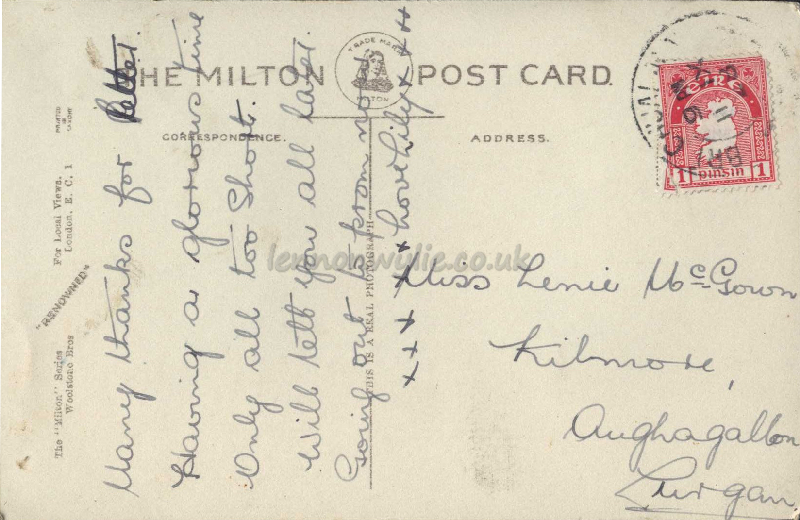 THE MILTON POST CARD
TRADE MARK
MILTON
CORRESPONDENCE.
ADDRESS.
Many thanks for letter.
Having a glorious time
Only all too Short.
Will tell you all later.
Going out to prom now
Love Lilly x x x x
x x x x x x
THIS IS A REAL PHOTOGRAPH
The "Milton" Series
Woolstone Bros
"RENOWNED"
For Local Views,
London, E. C. 1
PRINTED
Miss Lenie McGown
Kilmore,
Aughagallon
Lurgan
EIRE
1 pinsin 1
lennonwylie.co.uk